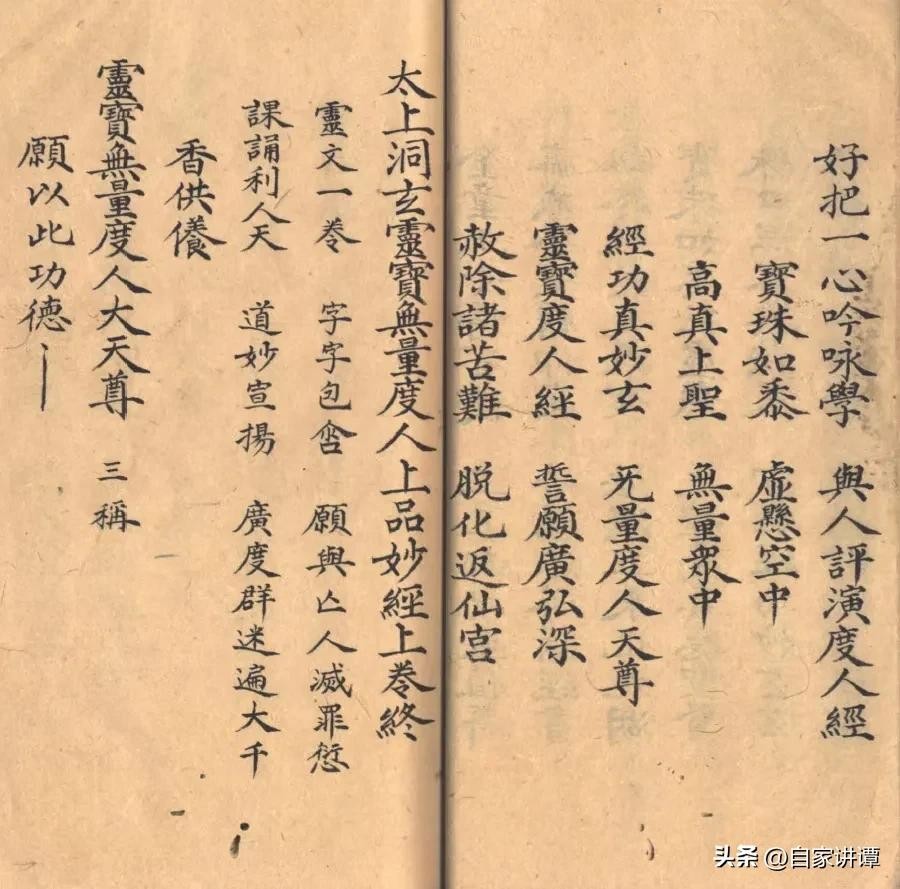 好把一心吟咏學 與人評演度人經
寶珠如黍 虛懸空中
高真上聖 無量眾中
經功真妙玄 无量度人天尊
靈寶度人經 誓願廣弘深
赦除諸苦難 脱化返仙宮
太上洞玄靈寶無量度人上品妙經上卷終
靈文一卷 字字包含 願與亾人滅罪愆
課誦利人天 道妙宣揚 廣度群迷遍大千
香供儀
靈寶無量度人大天尊 三稱
願以此功德
头条 @自家讲谭